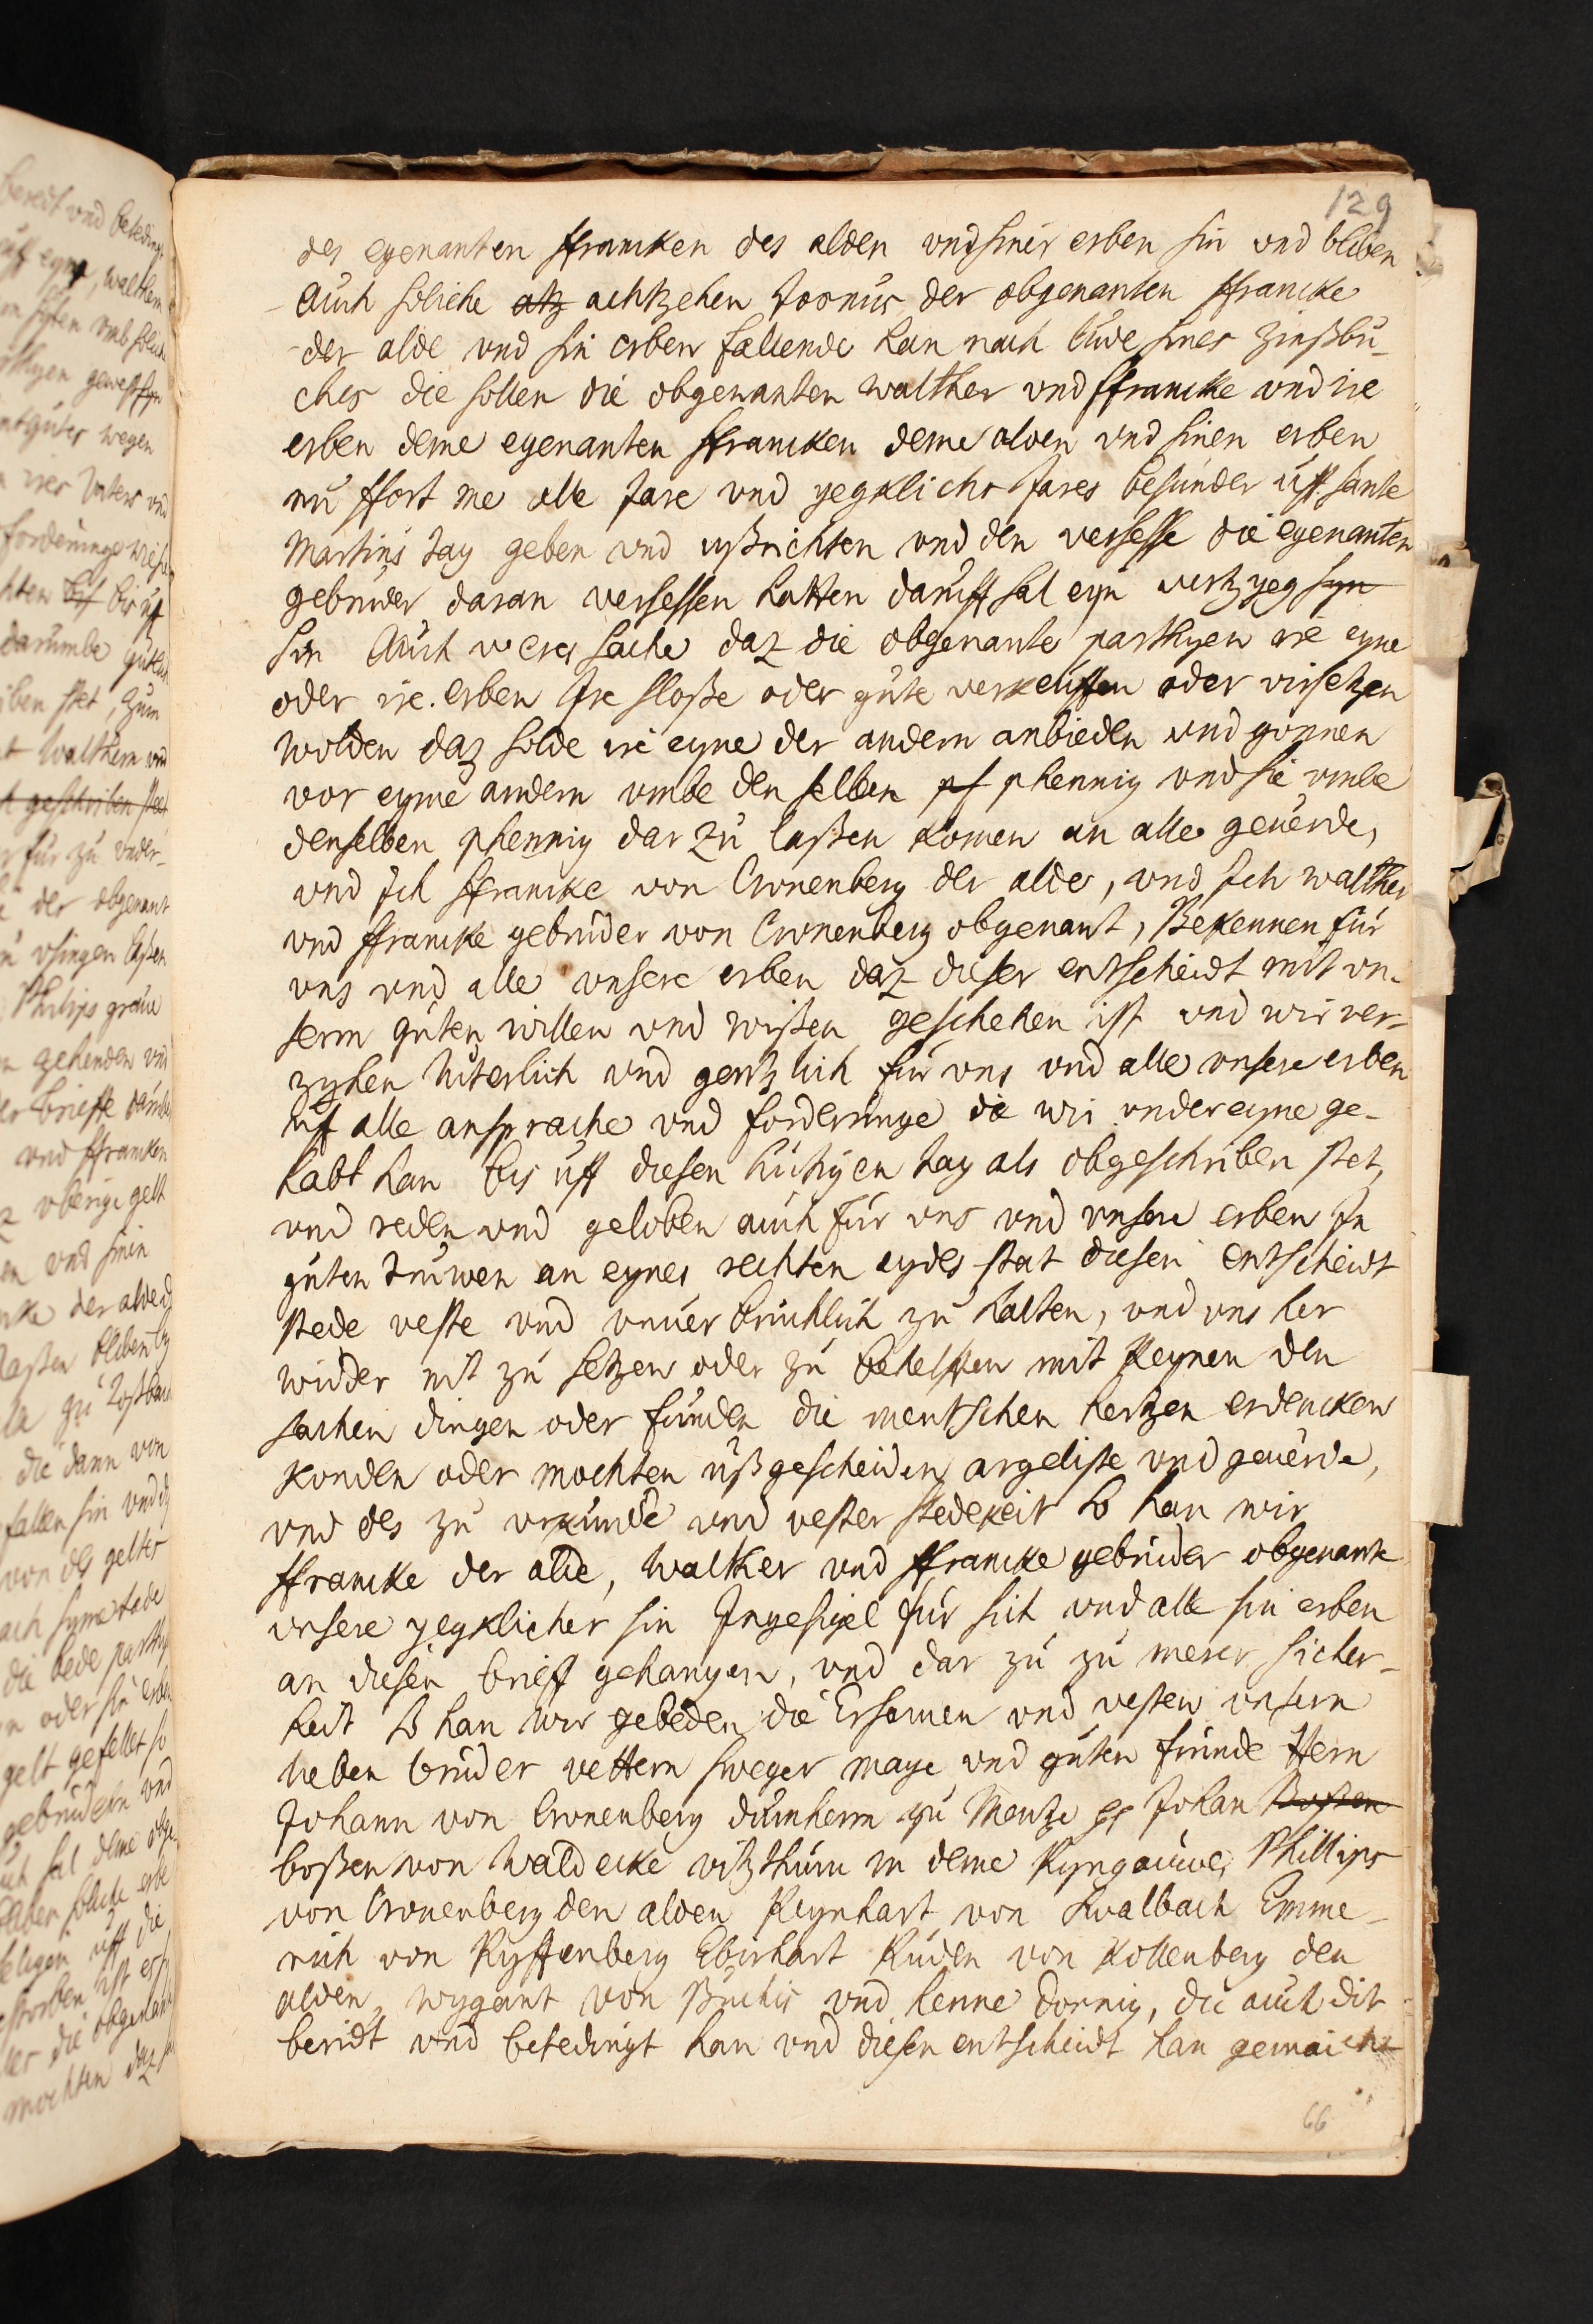 129
des egenanten ffrancken des alden vnd siner erben sin vnd bliben
Auch soliche atz achtzehen Tornus der obgenanten ffrancke
der alde vnd sin erben fallende han nach lude sines zinßbu-
ches die sollen die obgenanten walther vnd ffrancke vnd ire
erben deme egenanten ffrancken deme alden vnd sinen erben
nu ffort me alle Jare vnd yegklichs Jares besunder uff sante
Martins tag geben vnd ußrichten vnd den versesse die egenanten
gebruder daran versessen hatten daruff sal eyn vertzyeg syn
sin Auch weres sache daz die obgenante parthyen ire eyne
oder ire erben Ire sloße oder gute verkeuffen oder virsetzen
wolden daz solde ire eyne der andern anbieden vnd gonnen
vor eyme andern vmbe den selben pf phennig vnd sie vmbe
denselben phennig dar zu laßen komen an alle geuerde,
vnd Ich ffrancke von Cronenberg der alde, vnd Ich walther
vnd ffrancke gebruder von Cronenberg obgenant, Bekennen fur
vns vnd alle vnsere erben daz dieser entscheidt mit vn-
serm guten willen vnd wißen geschehen ist vnd wir ver-
zyhen luterlich vnd gentzlich fur vns vnd alle vnsere erben
uf alle ansprache vnd forderunge die wir vndereyne ge-
habt han bis uff diesen hutigen tag als obgeschriben stet,
vnd reden vnd geloben auch fur vns vnd vnsere erben In
guten truwen an eynes rechten eydes stat diesen entscheidt
stede veste vnd vnuerbruchlich zu halten, vnd vns her
widder nit zu setzen oder zu behelffen mit keynen den
sachen dingen oder funden die mentschen hertzen erdencken
konden oder mochten ußgescheiden argeliste vnd geuerde,
vnd des zu vrkunde vnd vester stedekeit so han wir
ffrancke der alde, Walther vnd ffrancke gebruder obgenante
vnsere yegklicher sin Ingesigel fur sich vnd alle sin erben
an diesen brieff gehangen, vnd dar zu zu merer sicher-
heit so han wir gebeden die Ersamen vnd vesten vnsern
lieben bruder vettern sweger mage vnd guten frunde Hern
Johann von Cronenberg dumherrn zu Mentze Johan Boßen
boßen von Waldecke vitzthum in deme Ryngauwe, Phillips
von Cronenberg den alden Reynhart von Swalbach Emme-
rich von Ryffenberg Eberhart Ruden von Kollenberg den
alden, wygant von Buchis vnd henne dornig, die auch dit
beridt vnd betedingt han vnd diesen entscheidt han gemaicht
66